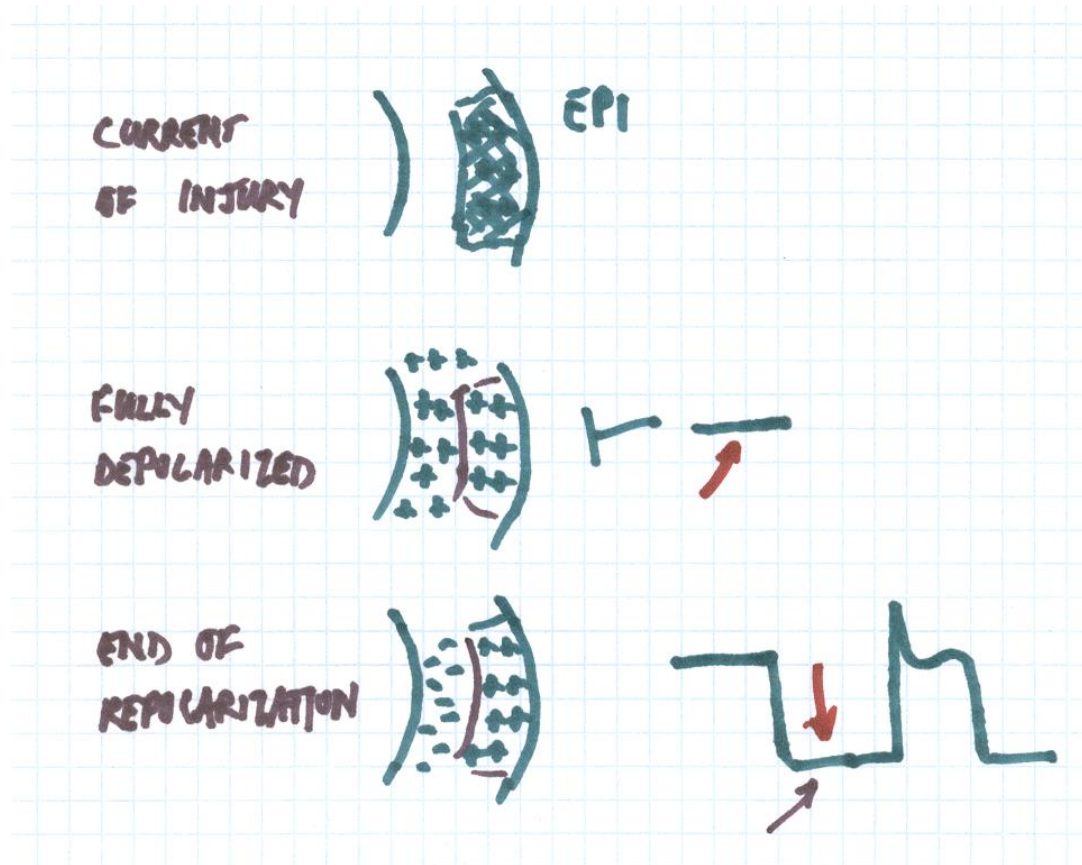 CURRENT
OF INJURY
EPI
FULLY
DEPOLARIZED
END OF
REPOLARIZATION